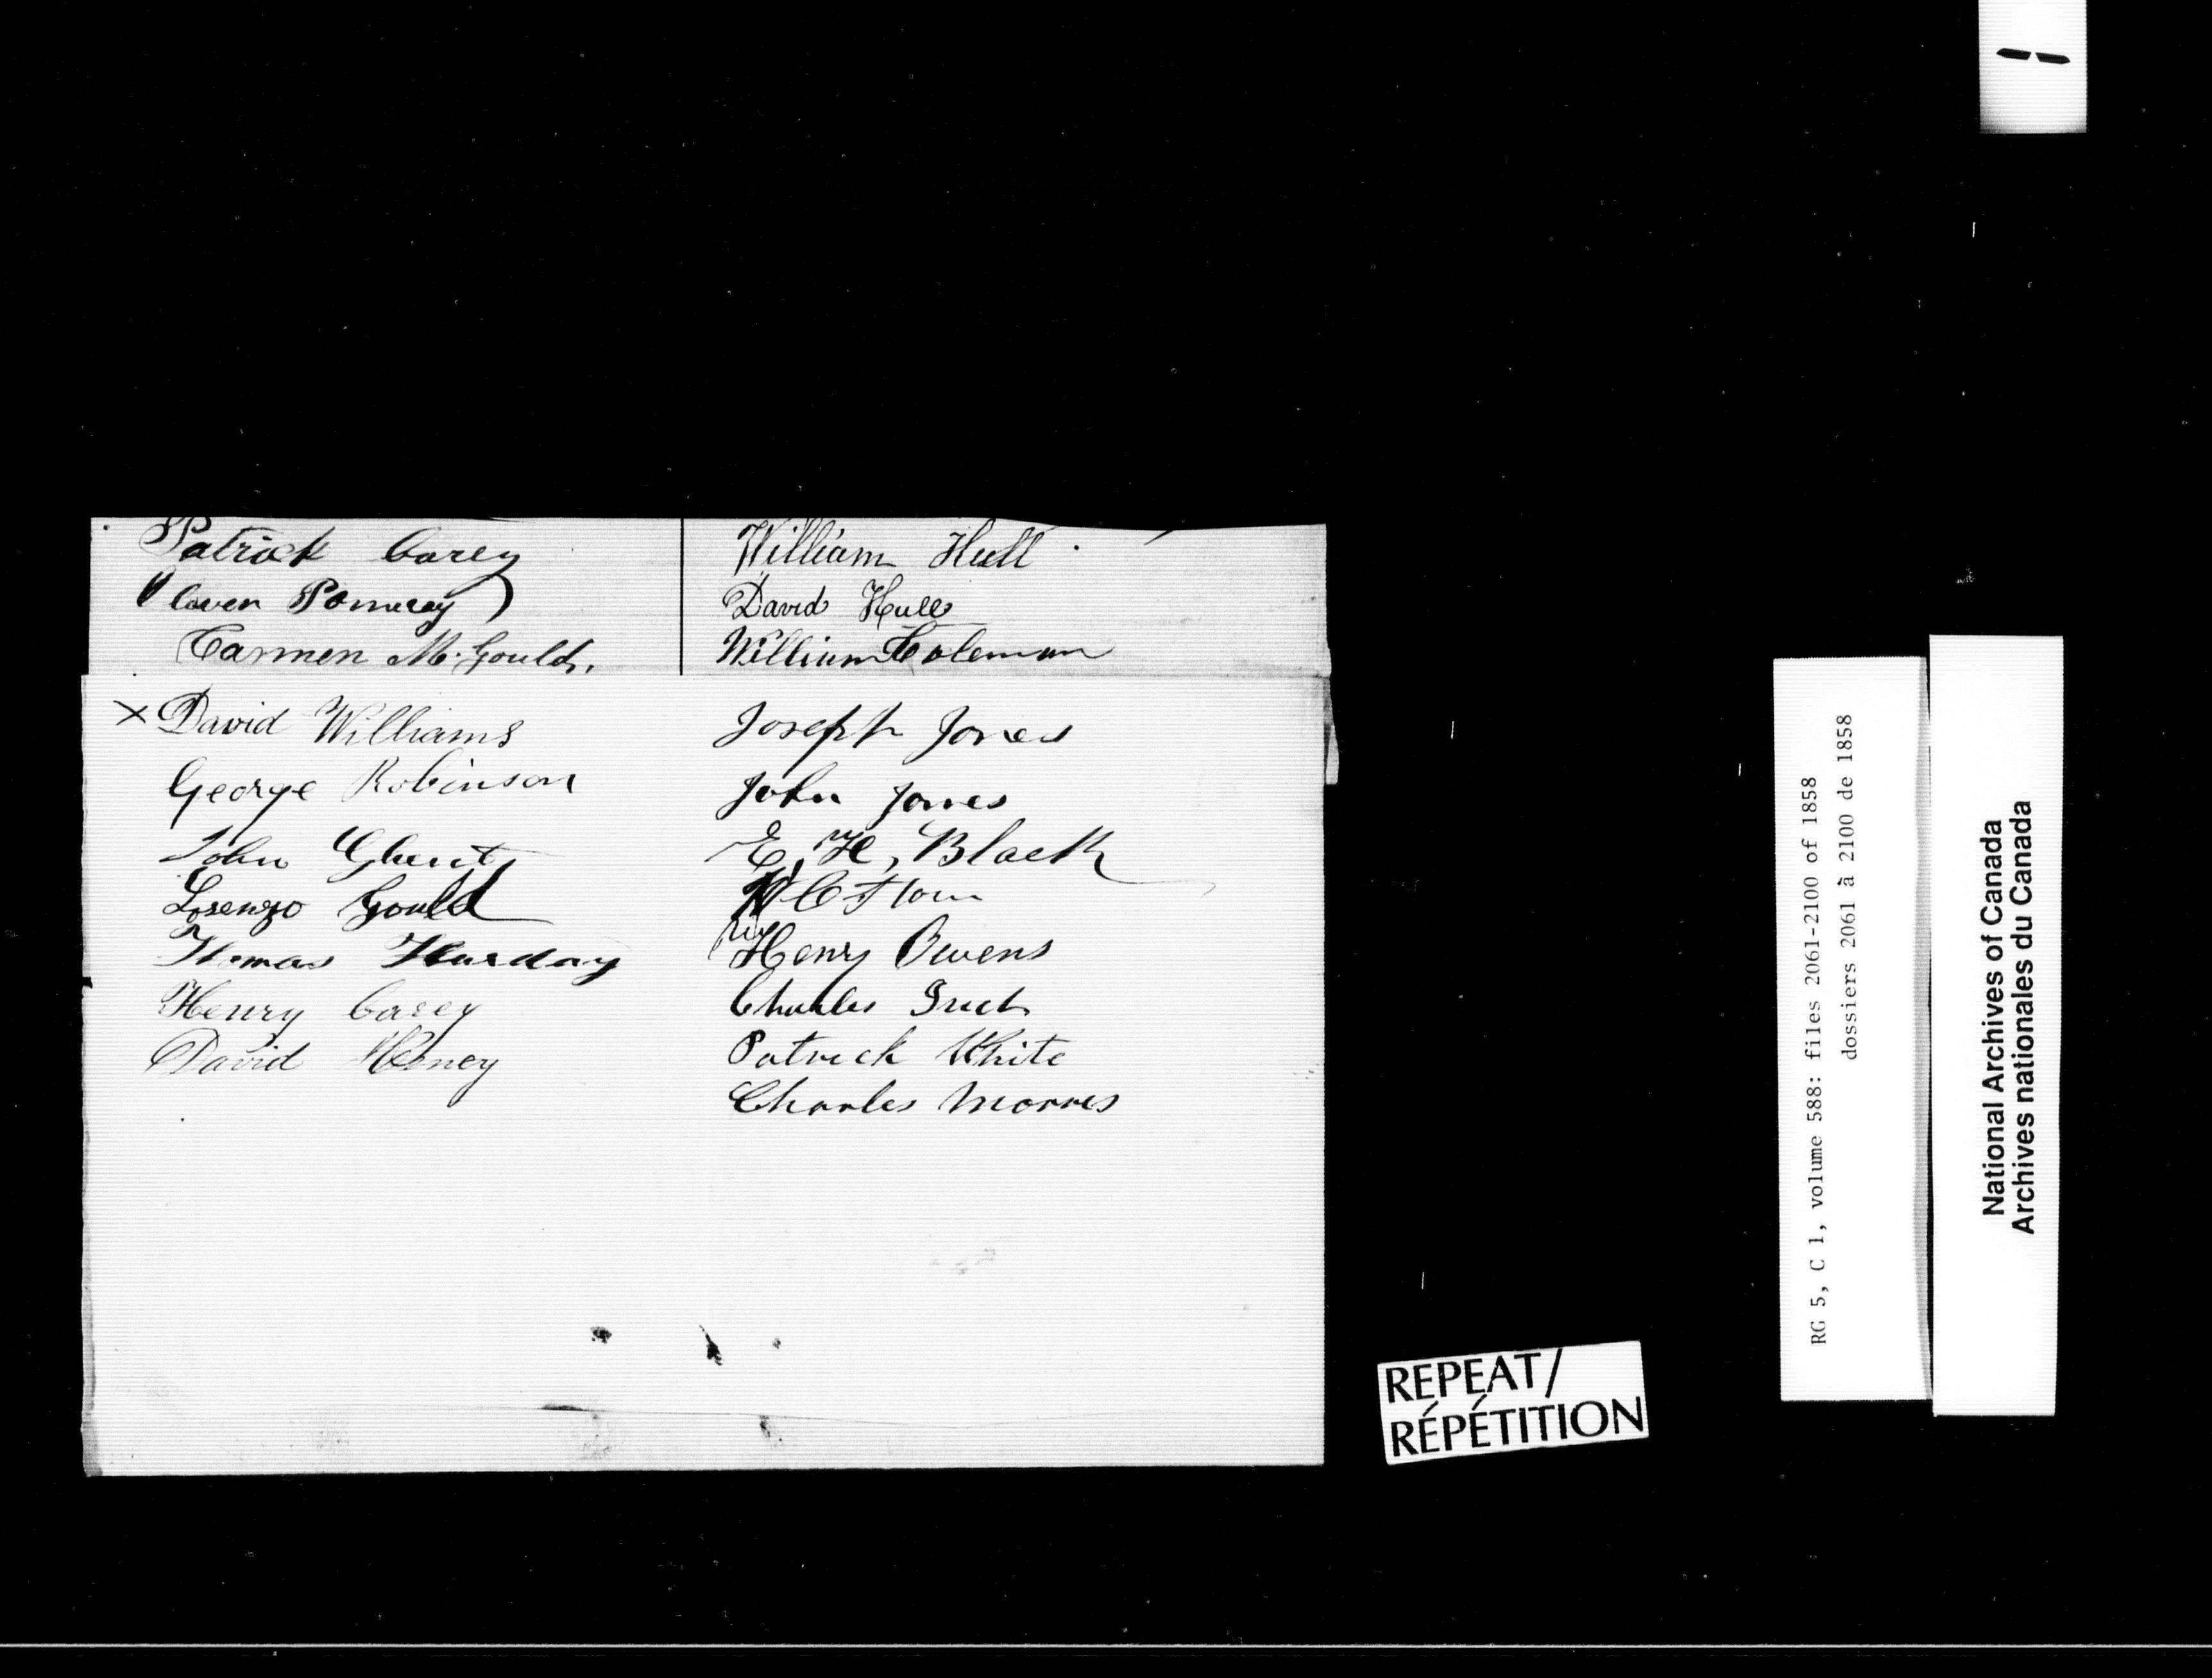 Patrick Carey
Oliver Pomeroy
Carmen M. Gould.
× David Williams
George Robinson
John Ghent
Lorenzo Gould
Thomas Harday
Henry Carey
David Heney
William Hull
David Hull
William Coleman
Joseph Jones
John Jones
E. H, Black
W C
Henry Owens
Charles
Patrick White
Charles Morris
REPEAT/
RÉPÉTITION
RG 5, C 1, volume 588: files 2061-2100 of 1858
dossiers 2061 à 2100 de 1858
National Archives of Canada
Archives nationales du Canada